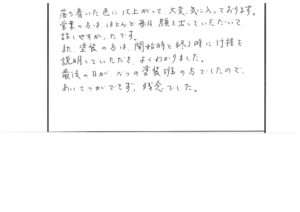 落ち着いた色に仕上がって、大変気に入っております。
営業の方は、ほとんど毎日顔を出していただいて
話しやすかったです。
また、塗装の方は、開始時と終了時に行程を
説明していただき、よくわかりました。
最後の日が、べつの塗装班の方でしたので、
あいさつができず、残念でした。